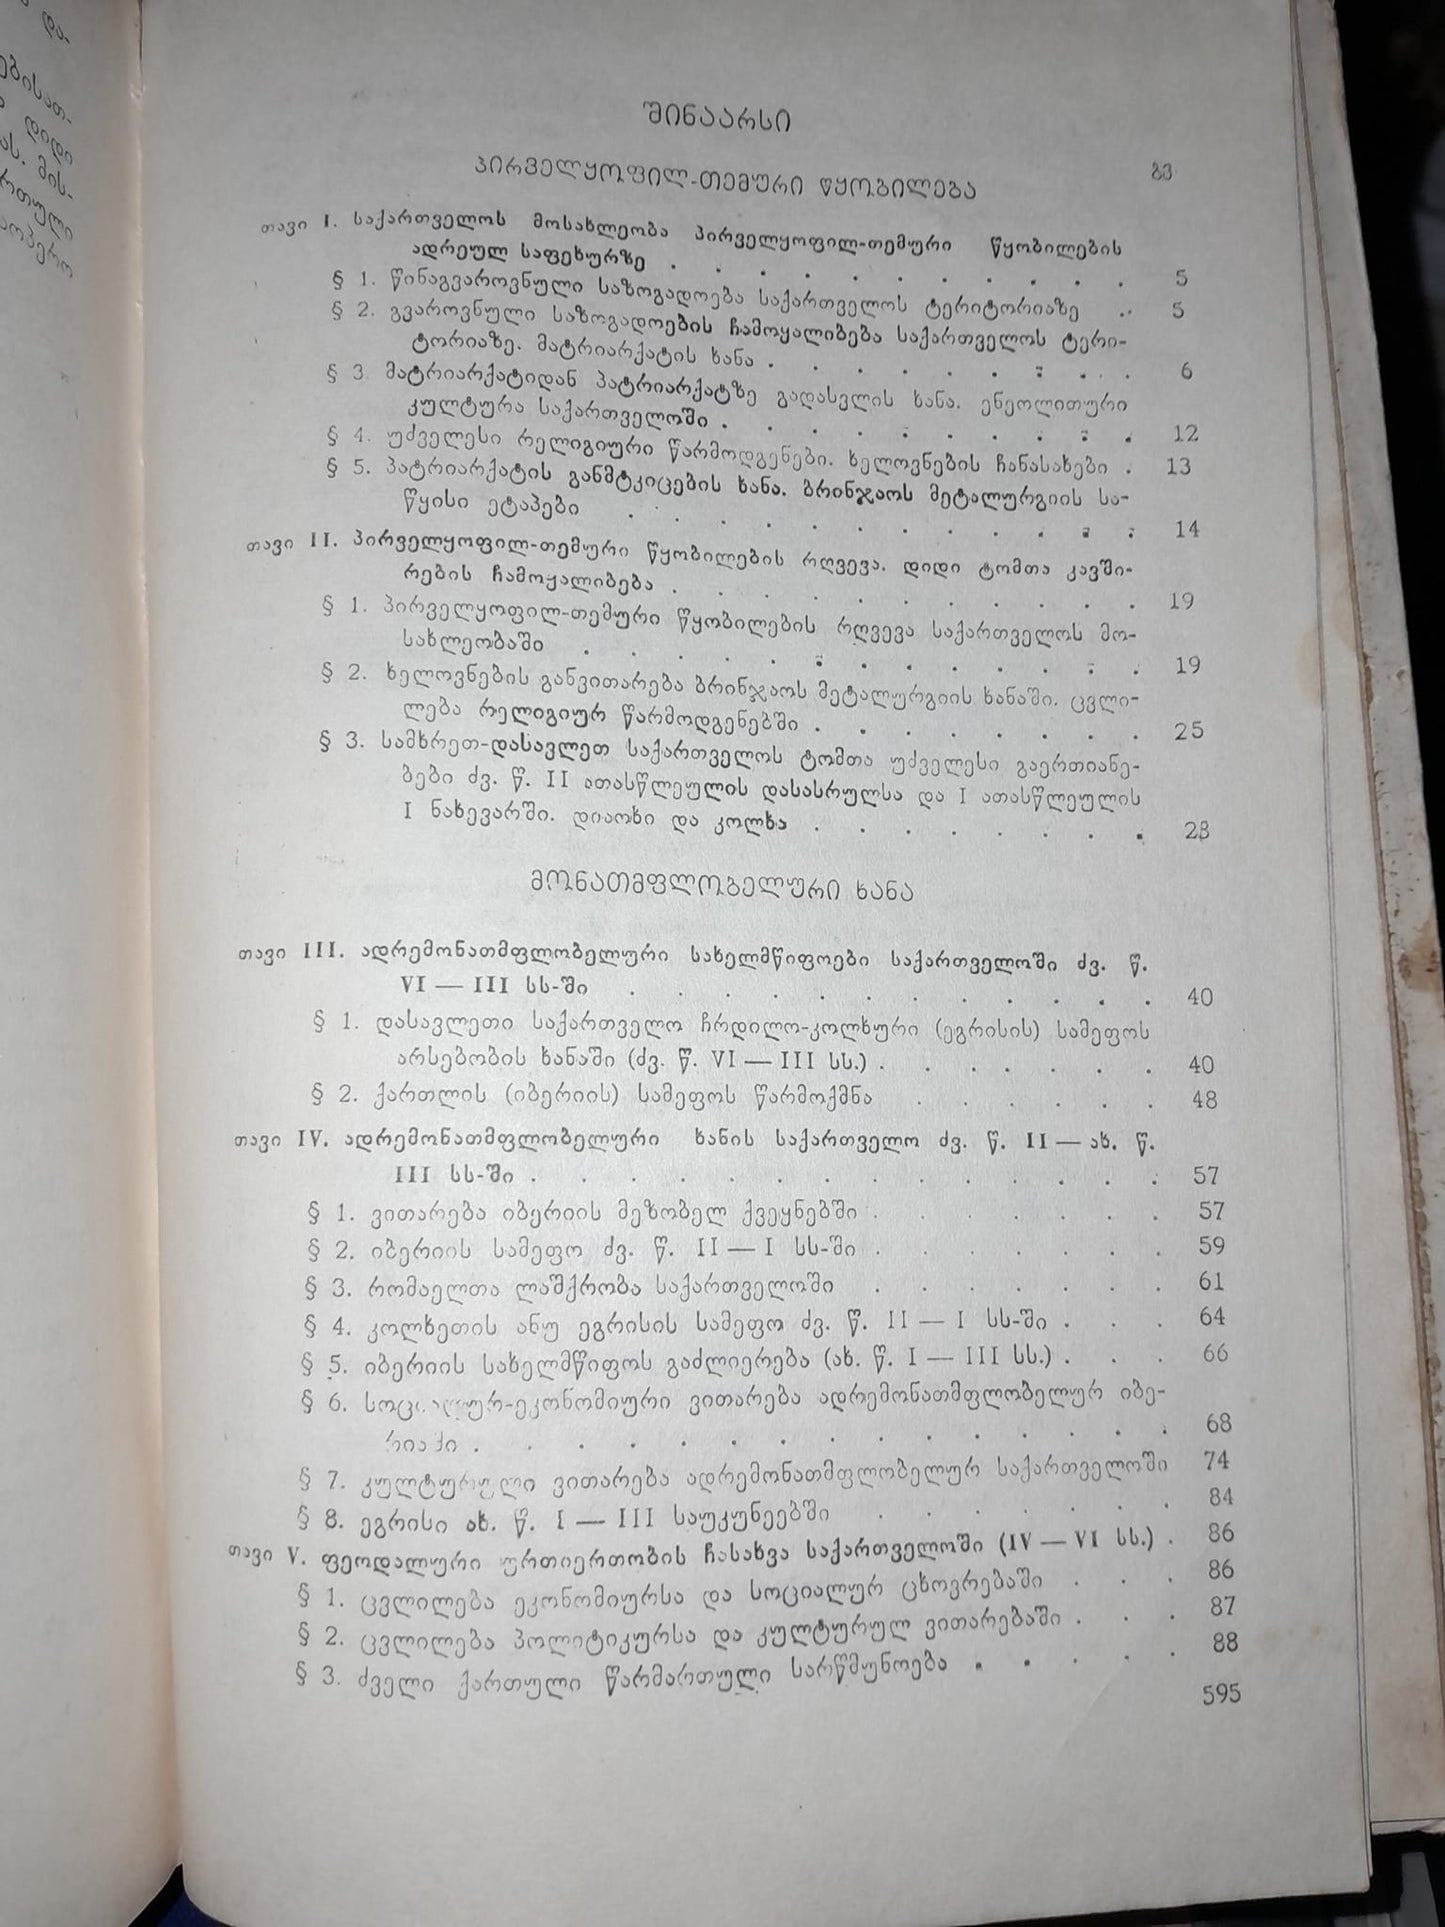 და-
ებისათ-
დიდი
ას. მის-
რთული
ოპერო
შინაარსი
პირველყოფილ-თემური წყობილება
გვ
თავი I. საქართველოს მოსახლეობა პირველყოფილ-თემური წყობილების
ადრეულ საფეხურზე . . . . . . . . . . . 5
§ 1. წინაგვაროვნული საზოგადოება საქართველოს ტერიტორიაზე . . 5
§ 2. გვაროვნული საზოგადოების ჩამოყალიბება საქართველოს ტერი-
ტორიაზე. მატრიარქატის ხანა . . . . . . . . . 6
§ 3 მატრიარქატიდან პატრიარქატზე გადასვლის ხანა. ენეოლითური
კულტურა საქართველოში . . . . . . . . . . 12
§ 4. უძველესი რელიგიური წარმოდგენები. ხელოვნების ჩანასახები . 13
§ 5. პატრიარქატის განმტკიცების ხანა. ბრინჯაოს მეტალურგიის სა-
წყისი ეტაპები . . . . . . . . . . . . 14
თავი II. პირველყოფილ-თემური წყობილების რღვევა. დიდი ტომთა კავში-
რების ჩამოყალიბება . . . . . . . . . . . 19
§ 1. პირველყოფილ-თემური წყობილების რღვევა საქართველოს მო-
სახლეობაში . . . . . . . . . . . . . 19
§ 2. ხელოვნების განვითარება ბრინჯაოს მეტალურგიის ხანაში. ცვლი-
ლება რელიგიურ წარმოდგენებში . . . . . . . . 25
§ 3. სამხრეთ-დასავლეთ საქართველოს ტომთა უძველესი გაერთიანე-
ბები ძვ. წ. II ათასწლეულის დასასრულსა და I ათასწლეულის
I ნახევარში. დიაოხი და კოლხა . . . . . . . . 28
მონათმფლობელური ხანა
თავი III. ადრემონათმფლობელური სახელმწიფოები საქართველოში ძვ. წ.
VI — III სს-ში . . . . . . . . . . . . 40
§ 1. დასავლეთი საქართველო ჩრდილო-კოლხური (ეგრისის) სამეფოს
არსებობის ხანაში (ძვ. წ. VI — III სს.) . . . . . . . 40
§ 2. ქართლის (იბერიის) სამეფოს წარმოქმნა . . . . . . 48
თავი IV. ადრემონათმფლობელური ხანის საქართველო ძვ. წ. II — ახ. წ.
III სს-ში . . . . . . . . . . . . . 57
§ 1. ვითარება იბერიის მეზობელ ქვეყნებში . . . . . . . 57
§ 2. იბერიის სამეფო ძვ. წ. II — I სს-ში . . . . . . . 59
§ 3. რომაელთა ლაშქრობა საქართველოში . . . . . . . 61
§ 4. კოლხეთის ანუ ეგრისის სამეფო ძვ. წ. II — I სს-ში . . . 64
§ 5. იბერიის სახელმწიფოს გაძლიერება (ახ. წ. I — III სს.) . . . 66
§ 6. სოციალურ-ეკონომიური ვითარება ადრემონათმფლობელურ იბე-
რიაში . . . . . . . . . . . . . . 68
§ 7. კულტურული ვითარება ადრემონათმფლობელურ საქართველოში 74
§ 8. ეგრისი ახ. წ. I — III საუკუნეებში . . . . . . . 84
თავი V. ფეოდალური ურთიერთობის ჩასახვა საქართველოში (IV — VI სს.) . 86
§ 1. ცვლილება ეკონომიურსა და სოციალურ ცხოვრებაში . . . 86
§ 2. ცვლილება პოლიტიკურსა და კულტურულ ვითარებაში . . . 87
§ 3. ძველი ქართული წარმართული სარწმუნოება . . . . . 88
595